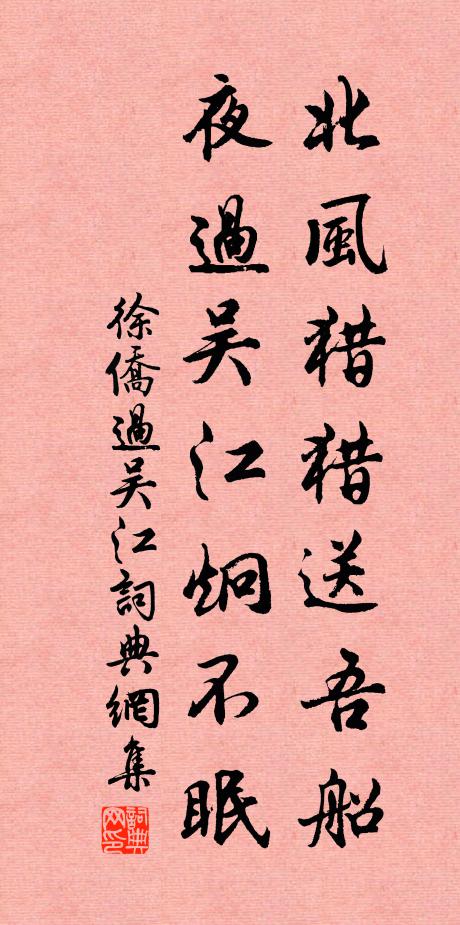 北風猎猎送吾船
夜過吴江炯不眠
徐僑過吴江詞典網集
詞典网印